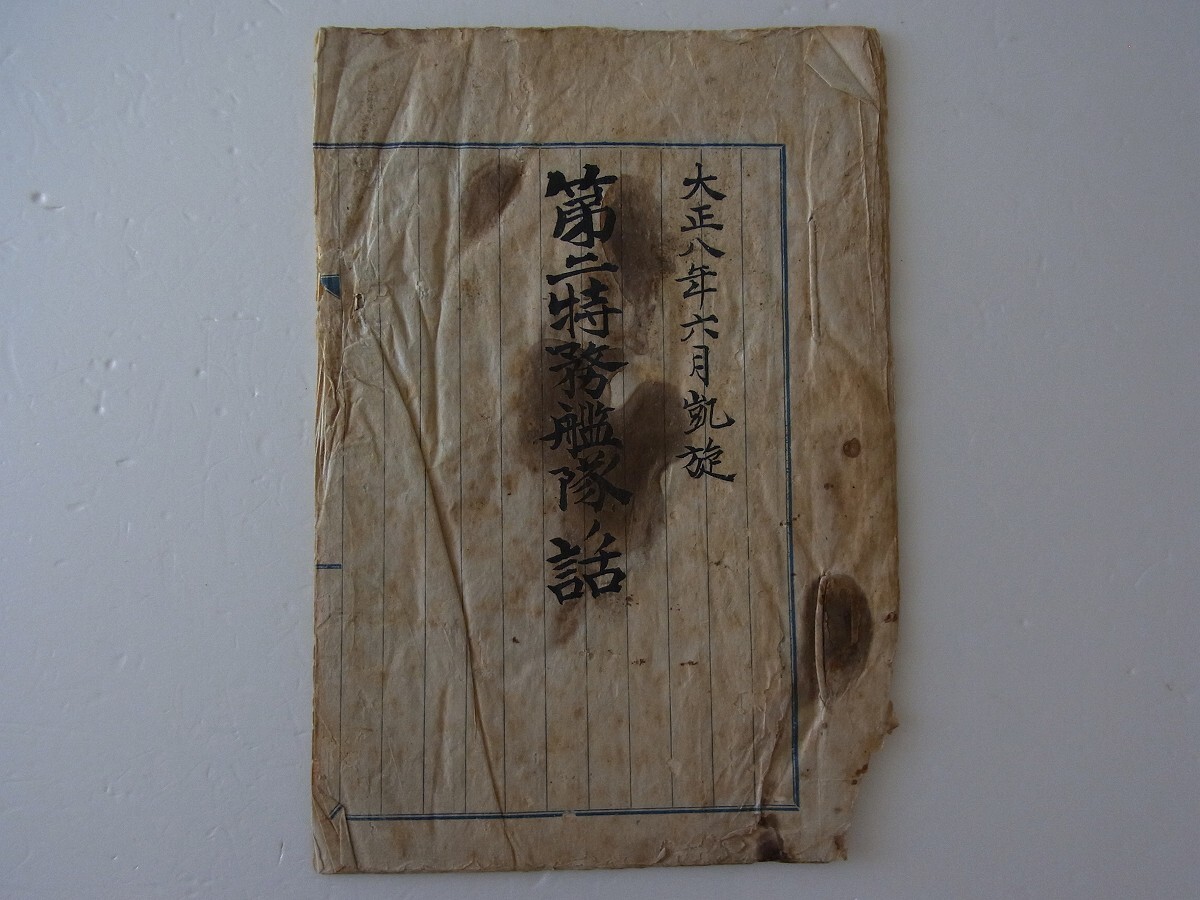 大正八年六月凱旋
第二特務艦隊ノ話